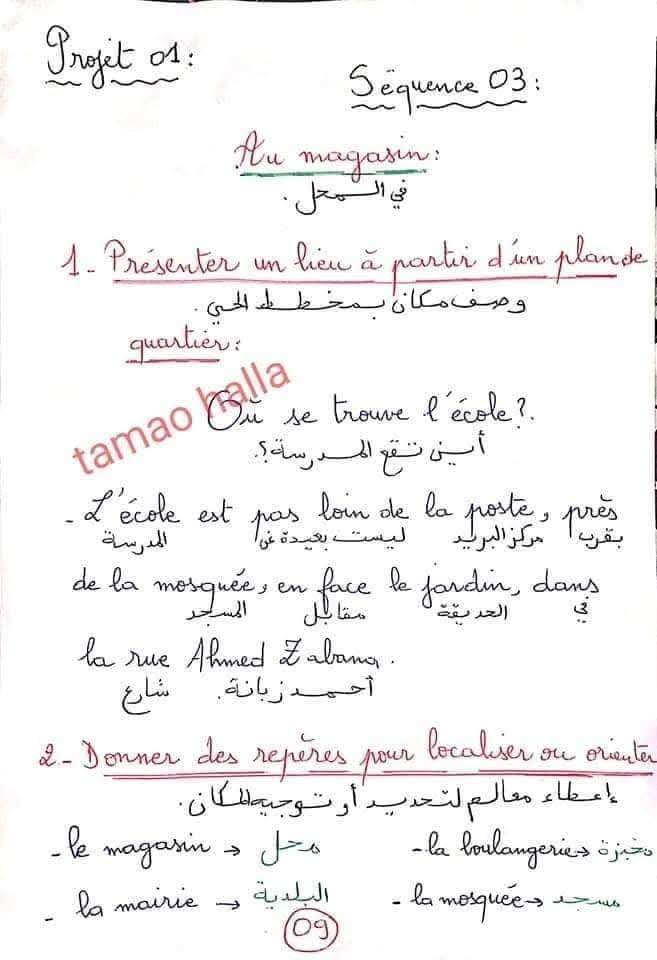 Projet 01:
Séquence 03:
Au magasin:
في المحل.
1- Présenter un lieu à partir d'un plan de
وصف مكان بمخطط الحي.
quartier:
tamao halla
Où se trouve l'école?.
أين تقع المدرسة؟.
- L'école est pas loin de la poste, près
المدرسة ليست بعيدة عن مركز البريد بقرب
de la mosquée, en face le jardin, dans
المسجد مقابل الحديقة في
la rue Ahmed Zabana.
شارع أحمد زبانة.
2- Donner des repères pour localiser ou orienter
إعطاء معالم لتحديد أو توجيه المكان.
- le magasin → محل - la boulangerie → مخبزة
- la mairie → البلدية - la mosquée → مسجد
09